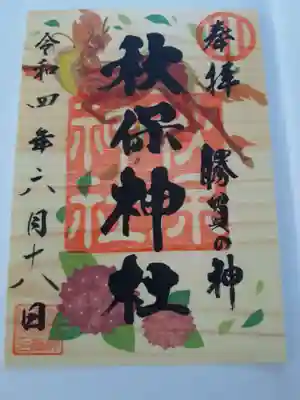 奉拝
勝負の神
秋保神社
令和四年六月十八日